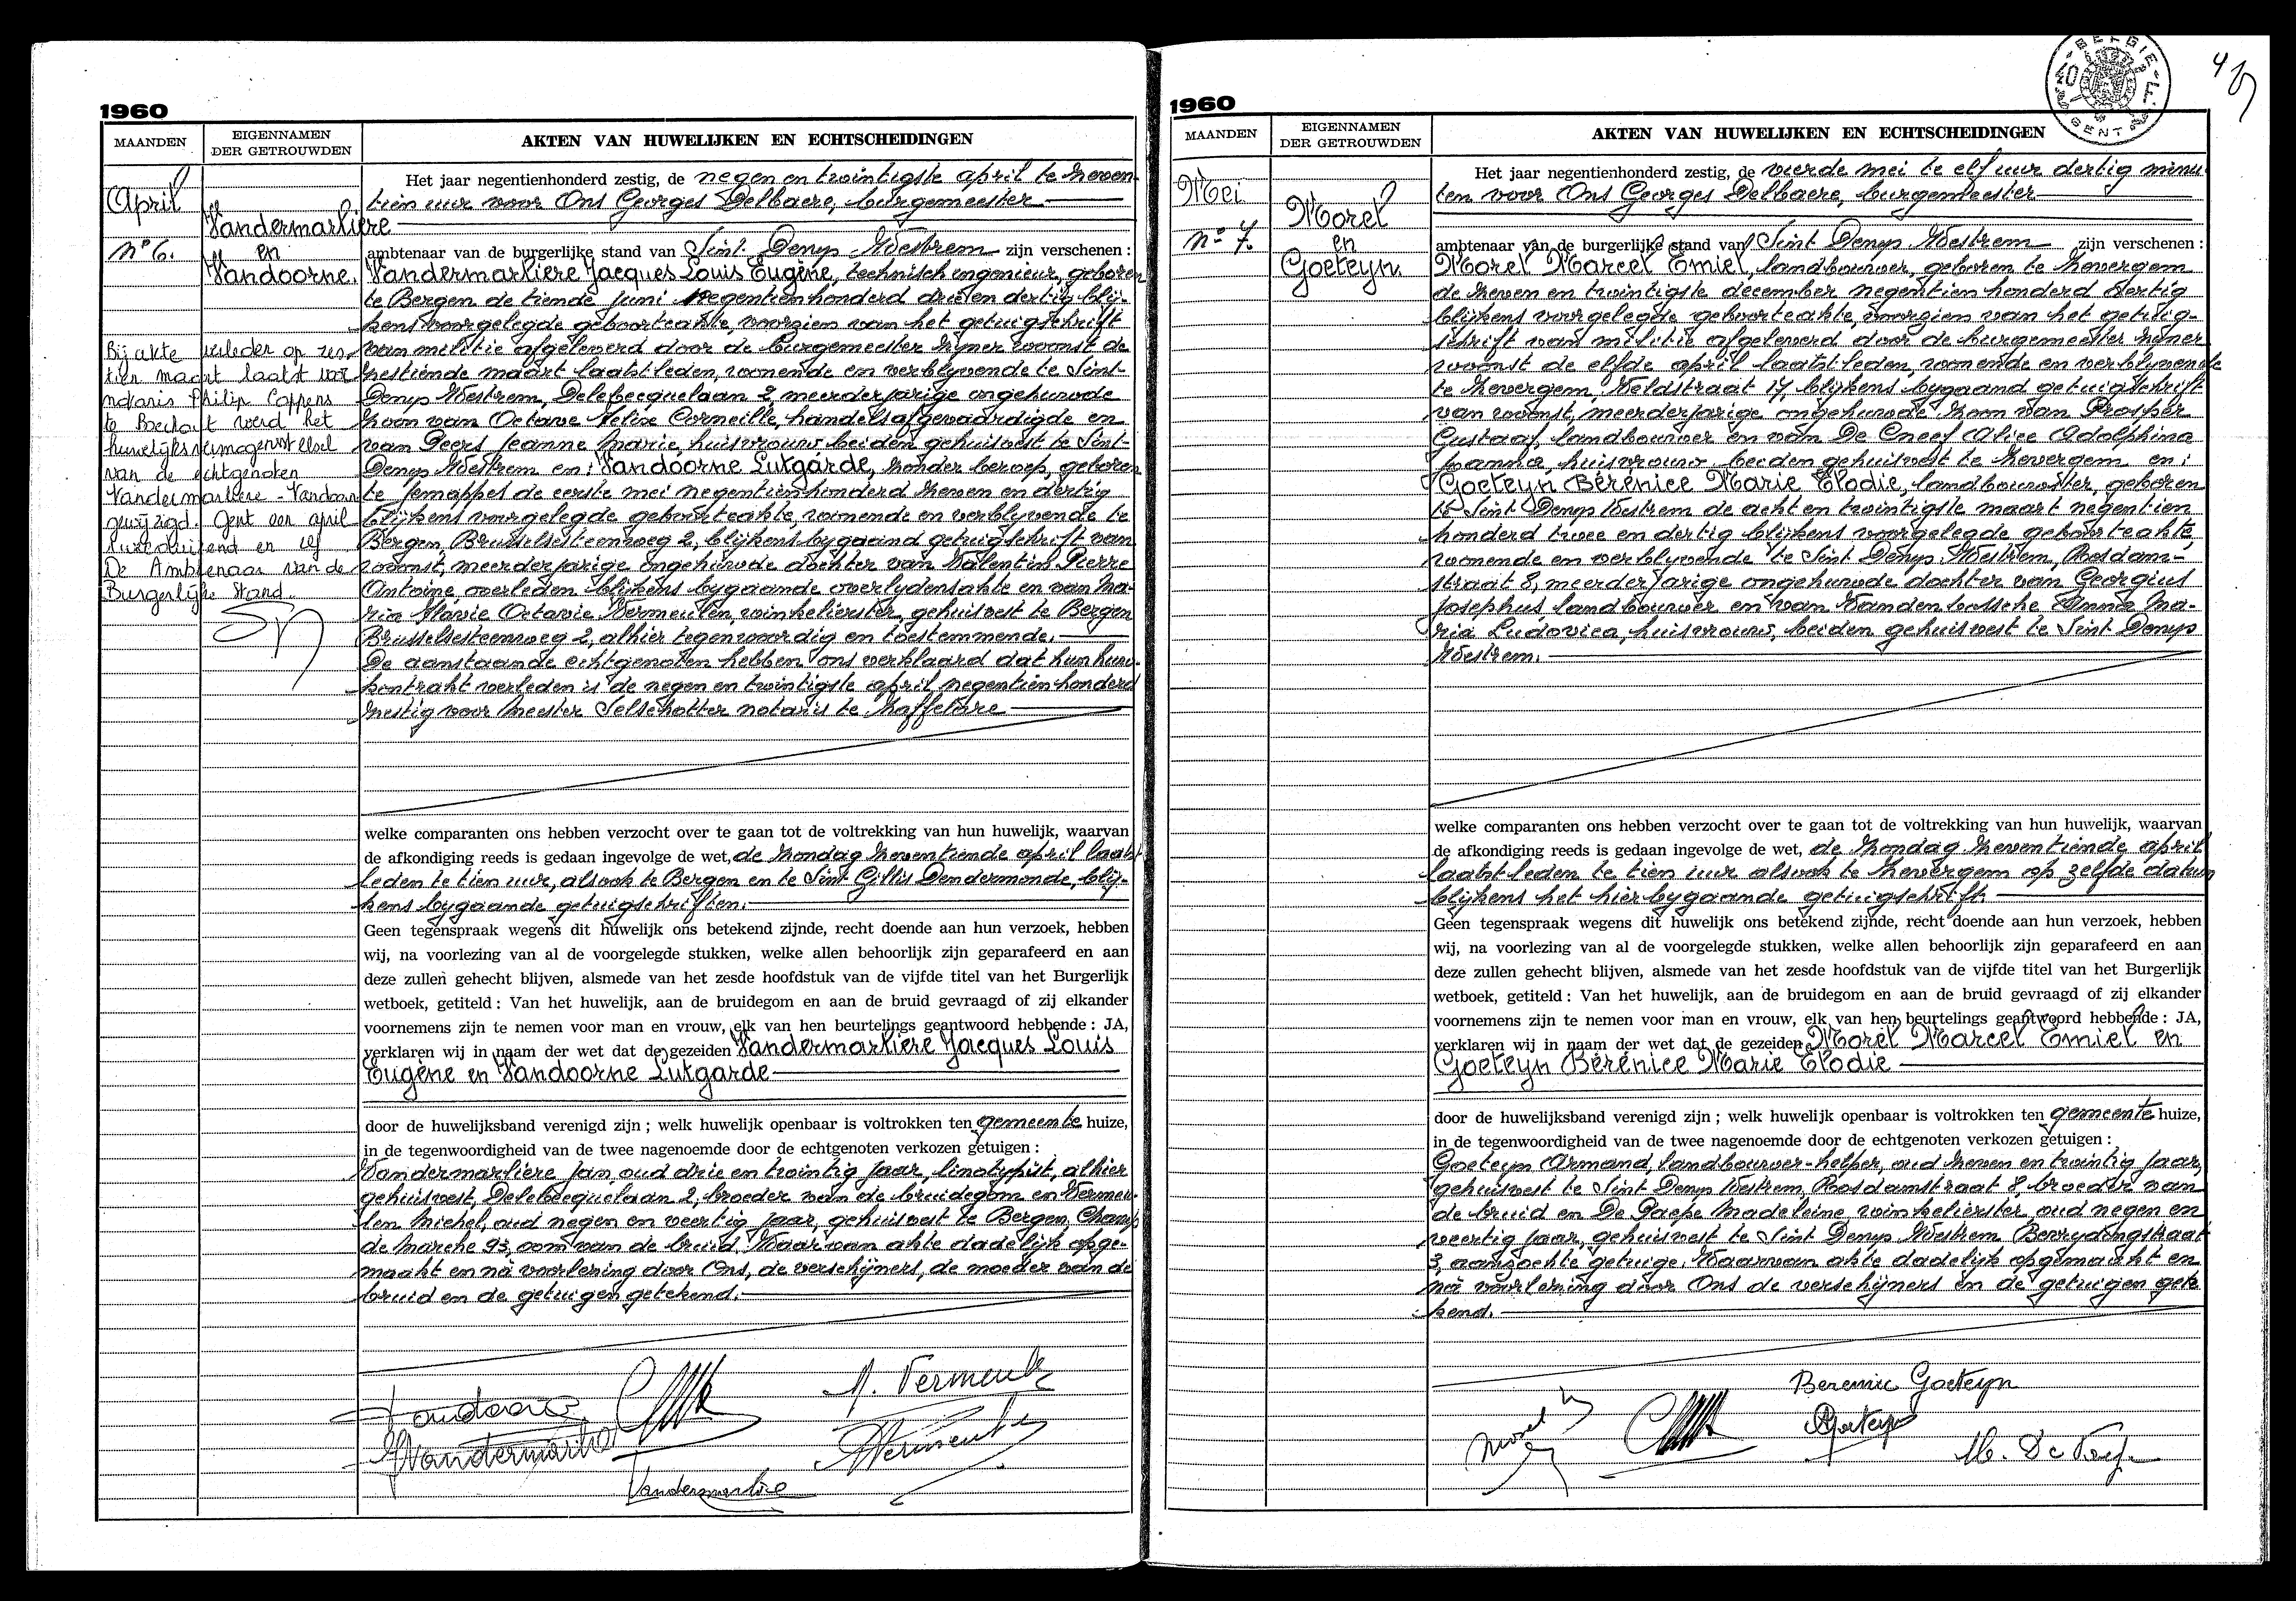 1960
MAANDEN
EIGENNAMEN
DER GETROUWDEN
AKTEN VAN HUWELIJKEN EN ECHTSCHEIDINGEN
April
Nº 6.
Vandermarliere
en
Vandoorne.
Bij akte verleden op zes-
tien maart laatst voor
notaris Philip Coppens
te Bocholt werd het
huwelijksvermogensstelsel
van de echtgenoten
Vandermarliere - Vandoorne
gewijzigd. Gent een april
tweeduizend en vijf
De Ambtenaar van de
Burgerlijke Stand.
Het jaar negentienhonderd zestig, de negen en twintigste april te zeven-
tien uur voor Ons Georges Delbaere, burgemeester
ambtenaar van de burgerlijke stand van Sint Denys Westrem zijn verschenen :
Vandermarliere Jacques Louis Eugène, technisch ingenieur, geboren
te Bergen de tiende juni negentienhonderd drie en dertig blij-
kens voorgelegde geboorteakte, voorzien van het getuigschrift
van militie afgeleverd door de burgemeester zijner woonst de
zestiende maart laatstleden, wonende en verblyvende te Sint-
Denys Westrem, Delebecquelaan 2, meerderjarige ongehuwde
zoon van Octave Félix Corneille, handelsafgevaardigde en
van Peers Jeanne Marie, huisvrouw beiden gehuisvest te Sint-
Denys Westrem en: Vandoorne Lutgarde, zonder beroep, geboren
te Jemappes de eerste mei negentienhonderd zeven en dertig
blijkens voorgelegde geboorteakte, wonende en verblyvende te
Bergen, Brusselsesteenweg 2, blijkens bygaand getuigschrift van
woonst, meerderjarige ongehuwde dochter van Valentin Pierre
Antoine, overleden blijkens bygaande overlydensakte en van Ma-
ria Flavie Octavie Vermeulen, winkelierster, gehuisvest te Bergen
Brusselsesteenweg 2, alhier tegenwoordig en toestemmende.
De aanstaande echtgenoten hebben ons verklaard dat hun huw.
kontrakt verleden is de negen en twintigste april negentienhonderd
zestig voor Meester Selschotter notaris te Zaffelare
welke comparanten ons hebben verzocht over te gaan tot de voltrekking van hun huwelijk, waarvan
de afkondiging reeds is gedaan ingevolge de wet, de zondag zeventiende april laatst
leden te tien uur, alsook te Bergen en te Sint Gillis Dendermonde, blij-
kens bygaande getuigschriften.
Geen tegenspraak wegens dit huwelijk ons betekend zijnde, recht doende aan hun verzoek, hebben
wij, na voorlezing van al de voorgelegde stukken, welke allen behoorlijk zijn geparafeerd en aan
deze zullen gehecht blijven, alsmede van het zesde hoofdstuk van de vijfde titel van het Burgerlijk
wetboek, getiteld : Van het huwelijk, aan de bruidegom en aan de bruid gevraagd of zij elkander
voornemens zijn te nemen voor man en vrouw, elk van hen beurtelings geantwoord hebbende : JA,
verklaren wij in naam der wet dat de gezeiden Vandermarliere Jacques Louis
Eugène en Vandoorne Lutgarde
door de huwelijksband verenigd zijn ; welk huwelijk openbaar is voltrokken ten gemeente huize,
in de tegenwoordigheid van de twee nagenoemde door de echtgenoten verkozen getuigen :
Vandermarliere Jan, oud drie en twintig jaar, linotypist, alhier
gehuisvest, Delebecquelaan 2, broeder van de bruidegom en Vermeu-
len Michel, oud negen en veertig jaar, gehuisvest te Bergen, Champ
de Marche 93, oom van de bruid. Waarvan akte dadelijk opge-
maakt en nà voorlezing door Ons, de verschijners, de moeder van de
bruid en de getuigen getekend.
Vandoorne
M. Vermeulen
Vandermarliere
Vermeulen
Vandermarliere
1960
MAANDEN
EIGENNAMEN
DER GETROUWDEN
AKTEN VAN HUWELIJKEN EN ECHTSCHEIDINGEN
BELGIE
40
GENT
Mei
Nº 7.
Morel
en
Goeteyn.
Het jaar negentienhonderd zestig, de vierde mei te elf uur dertig minu
ten voor Ons Georges Delbaere, burgemeester
ambtenaar van de burgerlijke stand van Sint Denys Westrem zijn verschenen :
Morel Marcel Emiel, landbouwer, geboren te Zevergem
de zeven en twintigste december negentien honderd dertig
blijkens voorgelegde geboorteakte, voorzien van het getuig-
schrift van militie afgeleverd door de burgemeester zijner
woonst de elfde april laatstleden, wonende en verblijvende
te Zevergem, Veldstraat 17, blijkens bygaand getuigschrift
van woonst, meerderjarige ongehuwde zoon van Prosper
Gustaaf, landbouwer en van De Cneef Alice Adolphina
Joanna, huisvrouw beiden gehuisvest te Zevergem en:
Goeteyn Bérénice Marie Elodie, landbouwster, geboren
te Sint Denys Westrem de acht en twintigste maart negentien
honderd twee en dertig blijkens voorgelegde geboorteakte
wonende en verblyvende te Sint Denys Westrem, Rosdam-
straat 8, meerderjarige ongehuwde dochter van Georgius
Josephus landbouwer en van Vandenbossche Emma Ma-
ria Ludovica, huisvrouw, beiden gehuisvest te Sint Denys
Westrem.
welke comparanten ons hebben verzocht over te gaan tot de voltrekking van hun huwelijk, waarvan
de afkondiging reeds is gedaan ingevolge de wet, de zondag zeventiende april
laatstleden te tien uur alsook te Zevergem op zelfde datum
blijkens het hierbygaande getuigschrift.
Geen tegenspraak wegens dit huwelijk ons betekend zijnde, recht doende aan hun verzoek, hebben
wij, na voorlezing van al de voorgelegde stukken, welke allen behoorlijk zijn geparafeerd en aan
deze zullen gehecht blijven, alsmede van het zesde hoofdstuk van de vijfde titel van het Burgerlijk
wetboek, getiteld : Van het huwelijk, aan de bruidegom en aan de bruid gevraagd of zij elkander
voornemens zijn te nemen voor man en vrouw, elk van hen beurtelings geantwoord hebbende : JA,
verklaren wij in naam der wet dat de gezeiden Morel Marcel Emiel en
Goeteyn Bérénice Marie Elodie
door de huwelijksband verenigd zijn ; welk huwelijk openbaar is voltrokken ten gemeente huize,
in de tegenwoordigheid van de twee nagenoemde door de echtgenoten verkozen getuigen :
Goeteyn Armand, landbouwer-helper, oud zeven en twintig jaar,
gehuisvest te Sint Denys Westrem, Rosdamstraat 8, broeder van
de bruid en De Paepe Madeleine, winkelierster, oud negen en
veertig jaar, gehuisvest te Sint Denys Westrem Bevrydingstraat
3, aangezochte getuige. Waarvan akte dadelijk opgemaakt en
nà voorlezing door Ons de verschijners en de getuigen gete
kend.
Berenice Goeteyn
Morel
Goeteyn
M. De Paepe